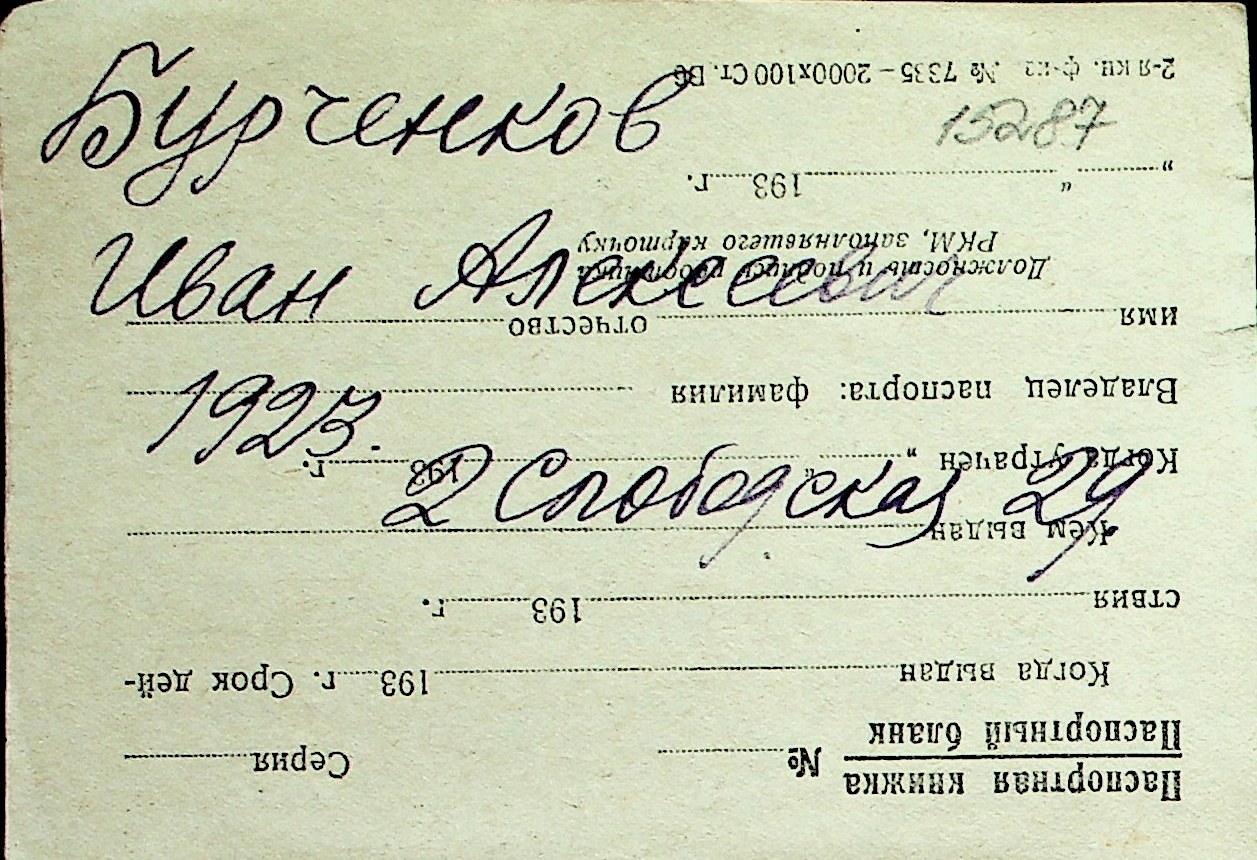 Бурченков
Иван Алексеевич
1923.
2 Слободская 29
15287
Паспортная книжка
Паспортный бланк
№ Серия
Когда выдан 193 г. Срок дей-
ствия 193 г.
Кем выдан
Когда утрачен „ “ 193 г.
Владелец паспорта: фамилия
имя отчество
Должность и подпись работника
РКМ, заполнявшего карточку
„ “ 193 г.
2-я кн. ф-ка № 7335 – 2000х100 Ст. В6